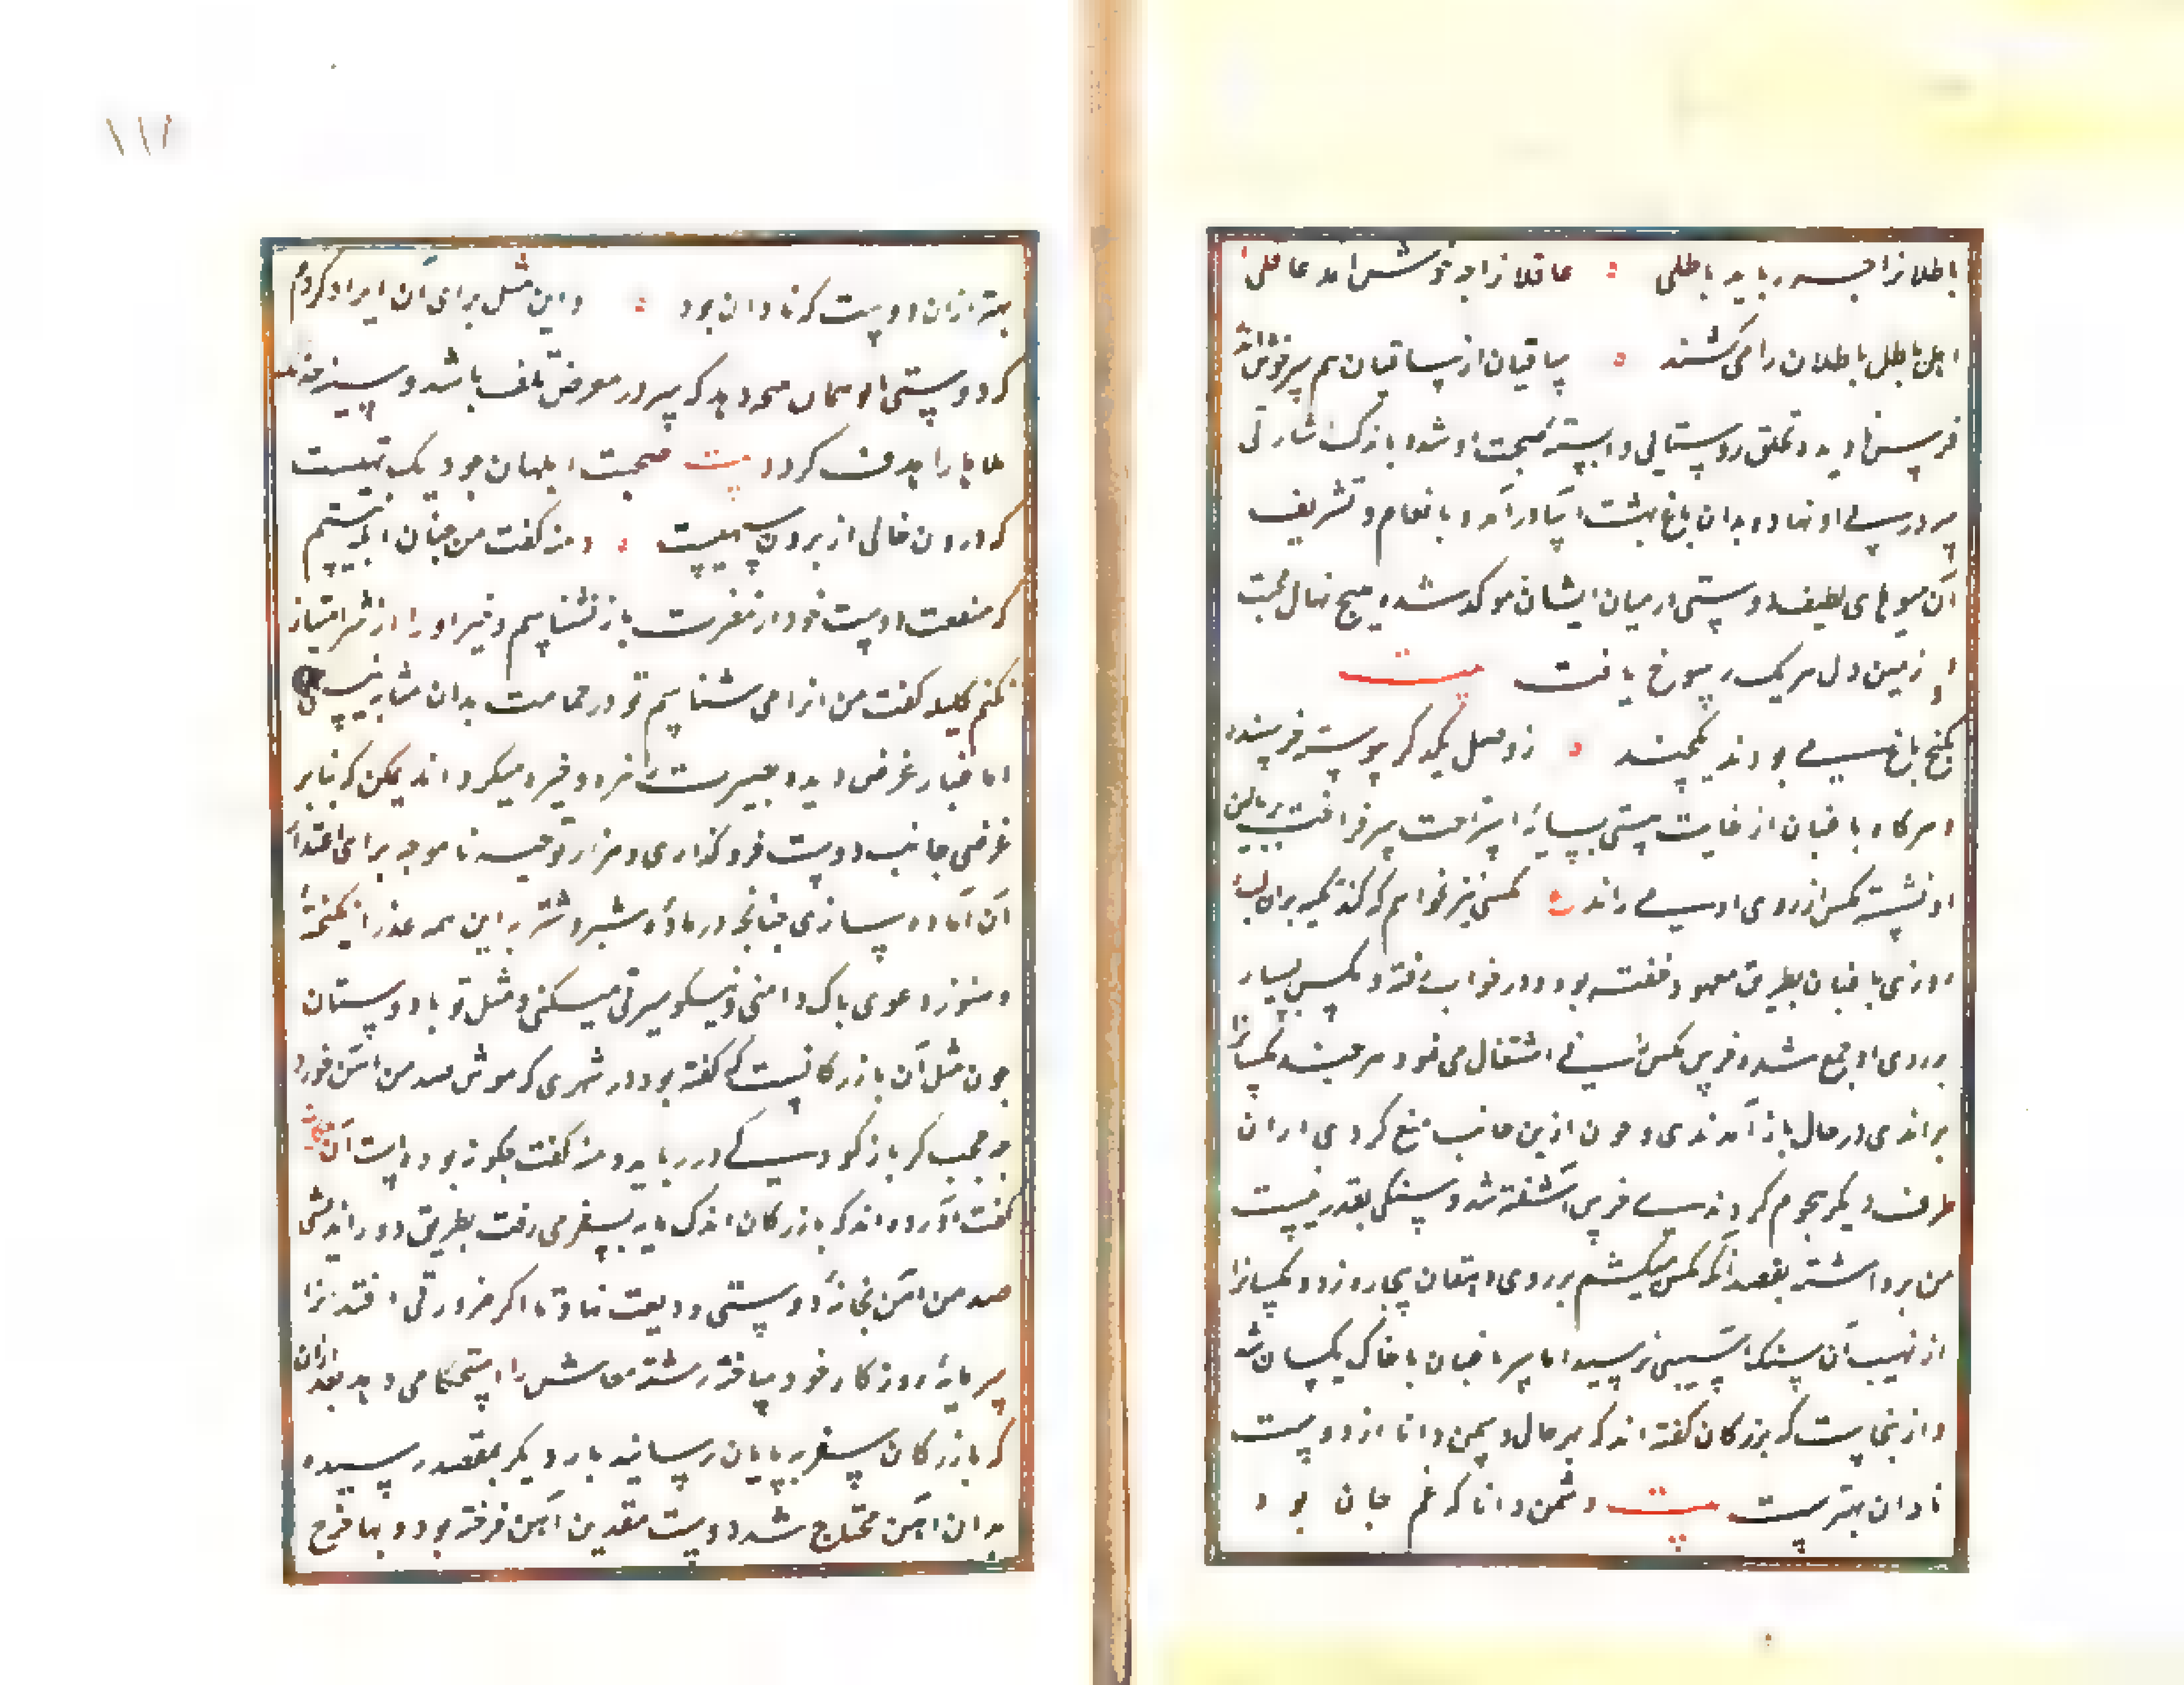 باطلانرا چه رباید باطلی : عاقلانرا چه خوش آمد عاقلی
اهل باطل باطلان را می کشند : باقیان از ساقیان هم سرخوش اند
خرس نادیده و تملق روستایی وابسته صحبت او شده باندک اشارتی
سر در پی او نهاده بدان باغ بهشت آسا درآمد و بانعام و تشریف
آن میوهای لطیف دوستی در میان ایشان موکد شد و بیخ نهال محبت
در زمین دل هر یک رسوخ یافت بیت
بکنج باغ می بودند یکچند : ز وصل یکدگر پیوسته خرسند
و هرکاه باغبان از غایت سستی بسایه استراحت سر فراغت ببالین
او نشسته مکس از روی او می راند ع مکسی نیز نخواهم که کند تکیه بران لب
روزی باغبان بطریق معهود خفته بود و در خواب رفته و مکس بسیار
بر روی او جمع شده خرس بمکس رانی اشتغال می نمود هر چند مکسانرا
براندی در حال باز آمدندی و چون ازین جانب منع کردی از آن
طرف دیکر هجوم کردندی خرس آشفته شد و سنکی بقدر بیست
من برداشته بقصد آنکه مکس میکشم بر روی دهقان بیچاره زد و مکسانرا
از نهیب آن سنک آسیبی نرسید اما سر باغبان با خاک یکسان شد
و از ینجاست که بزرکان کفته اند که بهر حال دشمن دانا از دوست
نادان بهترست بیت دشمن دانا که غم جان بود
۱۱۲
بهتر ازان دوست که نادان بود : و این مثل برای آن ایراد کردم
که دوستی تو همان میدهد که سر در معرض تلف باشد و سینه هدف
بلایا را هدف کردد بیت صحبت ابلهان چو دیک تهیست
که درون خالی از برون سیهیست : دمنه کفت من چنان ابله نیستم
که منفعت دوست خود از مضرت باز نشناسم و خیر او را از شر امتیاز
نکنم کلیله کفت من این را می شناسم تو در حماقت بدان مثابه نیستی
اما غبار غرض دیده بصیرت تیره و خیره میکرداند یمکن که بنابر
غرضی جانب دوست فرو کذاری و هزار توجیه ناموجه برای اعتذار
آن آماده سازی چنانچه در ماده شیر و شتربه این همه عذر انکیخته
و هنوز دعوی پاک دامنی و نیکو سیرتی میکنی و مثل تو با دوستان
چون مثل آن بازرکانیست که کفته بود در شهری که موش صد من آهن خورد
چه عجب کر باز کودکی در رباید دمنه کفت چکونه بوده است آن حکایت
کفت آورده اند که بازرکان اندک مایه بسفر می رفت بطریق دور اندیشی
صد من آهن بخانه دوستی ودیعت نهاد تا اکر ضرورتی افتد آنرا
سرمایه روزکار خود ساخته رشته معاش را استحکام می دهد بعد ازان
که بازرکان سفر بپایان رسانید بار دیکر بمقصد رسیده
بدان آهن محتاج شد دوست متدین آهن فروخته بود و بها خرج